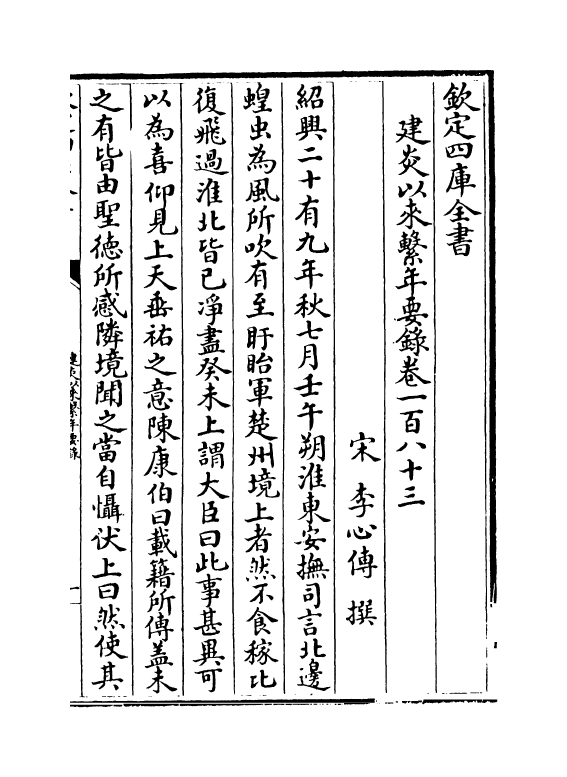 欽定四庫全書
建炎以来繫年要錄卷一百八十三
宋 李心傳 撰
紹興二十有九年秋七月壬午朔淮東安撫司言北邊
蝗虫為風所吹有至盱眙軍楚州境上者然不食稼比
復飛過淮北皆已凈盡癸未上謂大臣曰此事甚異可
以為喜仰見上天垂祐之意陳康伯曰載籍所傳蓋未
之有皆由聖德所感隣境聞之當自懾伏上曰然使其